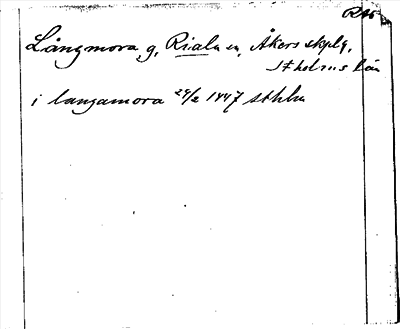 RA
Långmora g, Riala sn, Åkers skplg,
Stholms län
i langamora 24/2 1447 sthlm